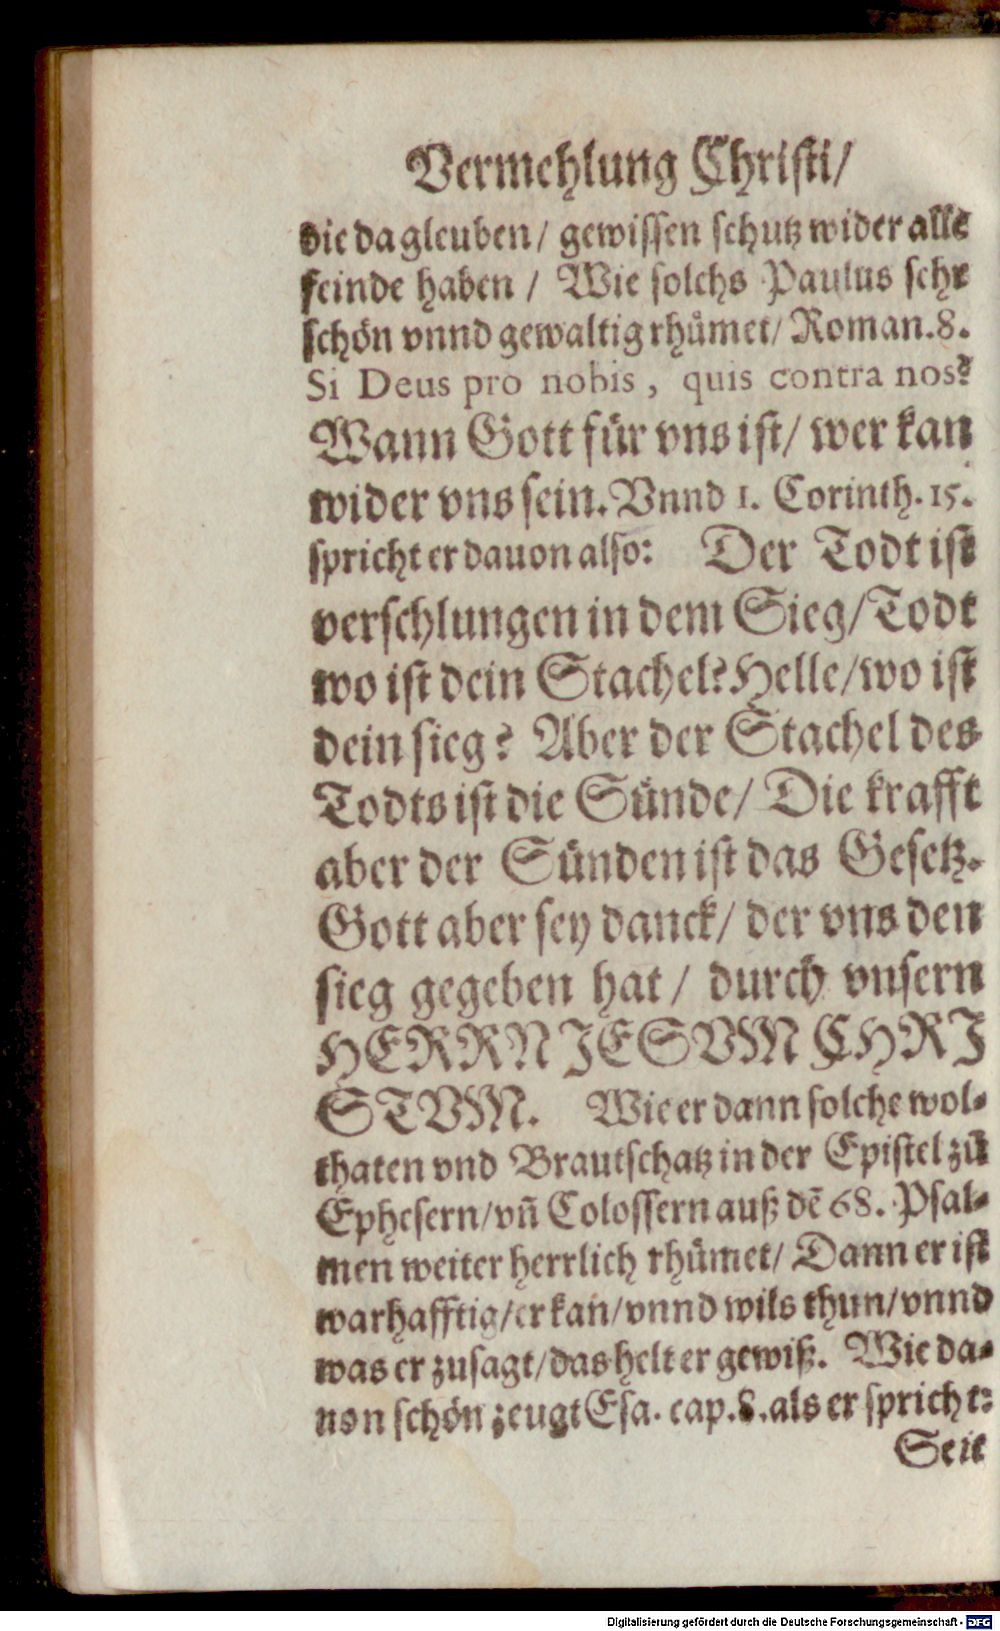 Vermehlung Christi/
die da gleuben/ gewissen schutz wider alle
feinde haben / Wie solchs Paulus sehr
schön vnnd gewaltig rhůmet/ Roman.8.
Si Deus pro nobis, quis contra nos?
Wann Gott für vns ist/ wer kan
wider vns sein. Vnnd 1. Corinth. 15.
spricht er dauon also: Der Todt ist
verschlungen in dem Sieg/ Todt
wo ist dein Stachel? Helle/ wo ist
dein sieg? Aber der Stachel des
Todts ist die Sünde/ Die krafft
aber der Sünden ist das Gesetz.
Gott aber sey danck/ der vns den
sieg gegeben hat / durch vnsern
HERRN JESVM CHRI
STVM. Wie er dann solche wol-
thaten vnd Brautschatz in der Epistel zů
Ephesern/ vñ Colossern auß dẽ 68. Psal-
men weiter herrlich rhůmet/ Dann er ist
warhafftig/ er kan/ vnnd wils thun/ vnnd
was er zusagt/ das helt er gewiß. Wie da-
uon schön zeugt Esa. cap.8. als er spricht:
Seit
Digitalisierung gefördert durch die Deutsche Forschungsgemeinschaft - DFG